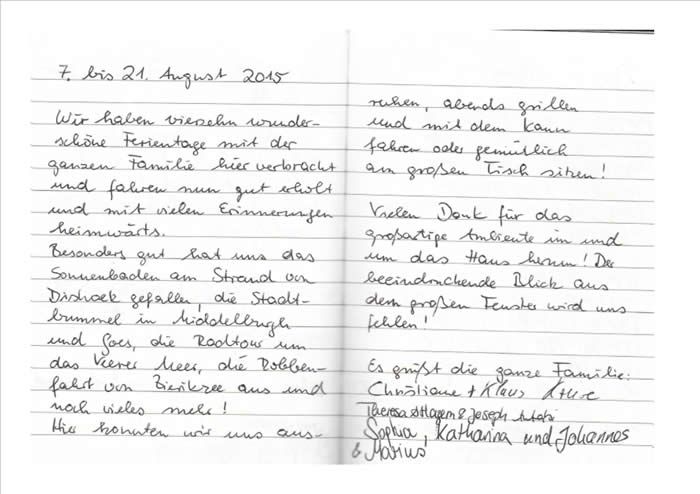 7. bis 21. August 2015
Wir haben vierzehn wunder-
schöne Ferientage mit der
ganzen Familie hier verbracht
und fahren nun gut erholt
und mit vielen Erinnerungen
heimwärts.
Besonders gut hat uns das
Sonnenbaden am Strand von
Dishoek gefallen, die Stadt-
bummel in Middelburgh
und Goes, die Radtour um
das Veerse Meer, die Robben-
fahrt von Zierikzee aus und
noch vieles mehr!
Hier konnten wir uns aus-
ruhen, abends grillen
und mit dem Kanu
fahren oder gemütlich
am großen Tisch sitzen!
Vielen Dank für das
großartige Ambiente im und
um das Haus herum! Der
beeindruckende Blick aus
dem großen Fenster wird uns
fehlen!
Es grüßt die ganze Familie:
Christiane + Klaus
Theresa & Hagem & Joseph
Sophia, Katharina und Johannes
& Marius